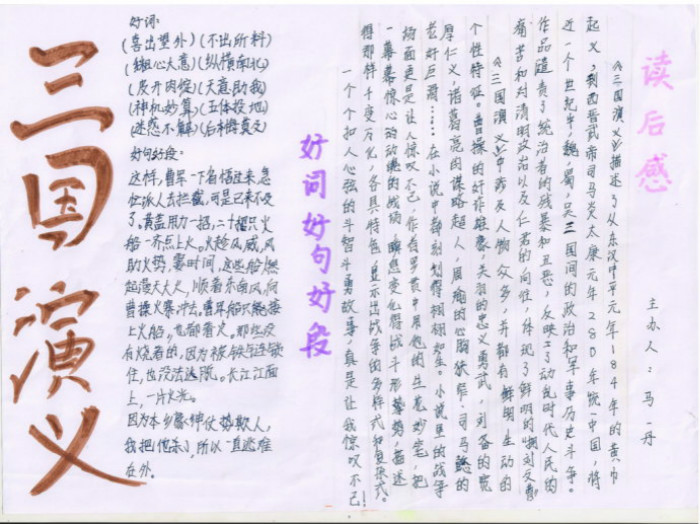 三国演义
好词:
(喜出望外)(不出所料)
(粗心大意)(纵横南北)
(皮开肉绽)(天意助我)
(神机妙算)(五体投地)
(迷惑不解)(后悔莫及)
好句好段:
这样,曹军一下省悟过来,急
忙派人去拦截,可是已来不及
了。黄盖用刀一招,二十只火
船一齐点上火。火趁风威,风
助火势,霎时间,这些船燃
起漫天大火,顺着东南风向
曹操火寨冲去。曹军船只
上火船,也都着火。那些没
有烧着的,因为被铁
住,也没法逃脱。长江江面
上,一片火光。
因为本乡豪绅仗势欺人,
我把他杀了,所以一直逃难
在外。
好词好句好段
读后感
主办人:马一丹
《三国演义》描述了从东汉中平元年184年的黄巾
起义,到西晋武帝司马炎太康元年280年统一中国,将
近一个世纪中,魏,蜀,吴三国间的政治和军事历史斗争。
作品谴责了统治者的残暴和丑恶,反映了动乱时代人民的
痛苦和对清明政治以及仁君的向往,体现了鲜明的
《三国演义》中涉及人物众多,并都有鲜明、生动的
个性特征。曹操的奸诈雄豪,关羽的忠义勇武,刘备的宽
厚仁义,诸葛亮的谋略超人,周瑜的心胸狭窄,司马懿的
老奸巨滑……在小说中都刻划得栩栩如生。小说里的战争
场面更是让人惊叹不已,作者罗贯中用他的生花妙笔,把
一幕幕惊心动魄的战场,瞬息变化得战斗形势,描述
得那样千变万化,各具特色,显示出战争的多样式和复杂式。
一个个扣人心弦的斗智斗勇故事,真是让我惊叹不已!